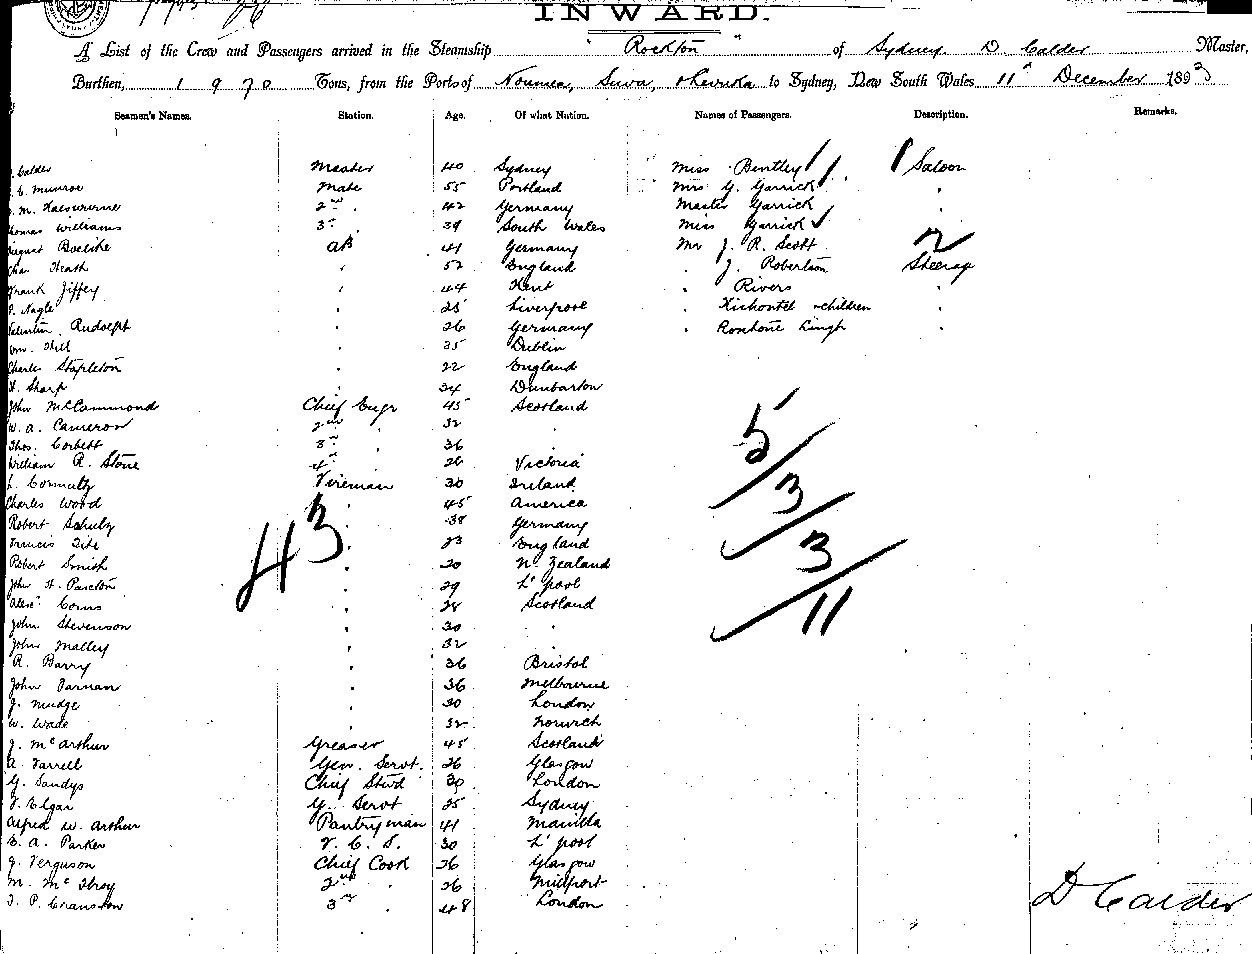 INWARD.
A List of the Crew and Passengers arrived in the Steamship "Rockton" of Sydney D. Calder Master,
Burthen, 1970 Tons, from the Ports of Noumea, Suva, to Sydney, New South Wales 11th December 1893
Seamen's Names. Station. Age. Of what Nation. Names of Passengers. Description. Remarks.
Calder Master 40 Sydney Miss Bentley 1 Saloon
C. Munroe Mate 55 Portland Mrs G. Garrick "
M. 2nd 42 Germany Master Garrick "
Thomas Williams 3rd 39 South Wales Miss Garrick "
August Boelike AB 41 Germany Mr J. R. Scott 2
Chas. Heath " 52 England " J. Robertson Steerage
Frank Jiffey " 44 Kent " Rivers "
Nagle " 25 Liverpool " children "
Valentin Rudolph " 26 Germany " Singh "
Wm. Hill " 35 Dublin
Charles Stapleton " 22 England
H. Sharp " 34 Dunbarton
John McCammond Chief Engr 45 Scotland
W. A. Cameron 2nd " 32 "
Thos. Corbett 3rd " 36 "
William R. Stone 4th " 26 Victoria
L. Connulty Fireman 30 Ireland
Charles Wood " 45 America
Robert Schulz " 38 Germany
Francis Tite " 23 England
Robert Smith " 20 N. Zealand
John H. " 29 L'pool
Alexr. " 28 Scotland
John Stevenson " 30 "
John Malley " 32 "
R. Barry " 36 Bristol
John Farnan " 36 Melbourne
J. Mudge " 30 London
W. Wade " 32 Norwich
J. McArthur Greaser 45 Scotland
A. Farrell Gen. Servt. 26 Glasgow
G. Sandys Chief Stwd 30 London
F. Elgar G. Servt 25 Sydney
Alfred W. Arthur Pantryman 41 Manilla
E. A. Parker F. C. S. 30 L'pool
J. Ferguson Chief Cook 26 Glasgow
M. McIlroy 2nd " 26 Millport
F. P. Cranston 3rd " 48 London
43
5
3
3
11
D Calder